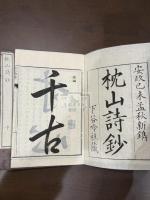 安政己未孟秋新鐫
枕山詩鈔
下谷吟社藏
千古
枕山詩鈔